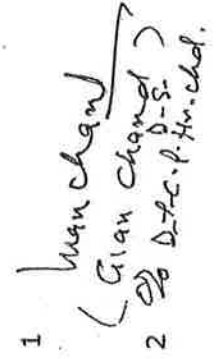 1
Gian Chand
(Gian Chand)
D-S-
2 O/o D.T.C.P. Hr. Chd.